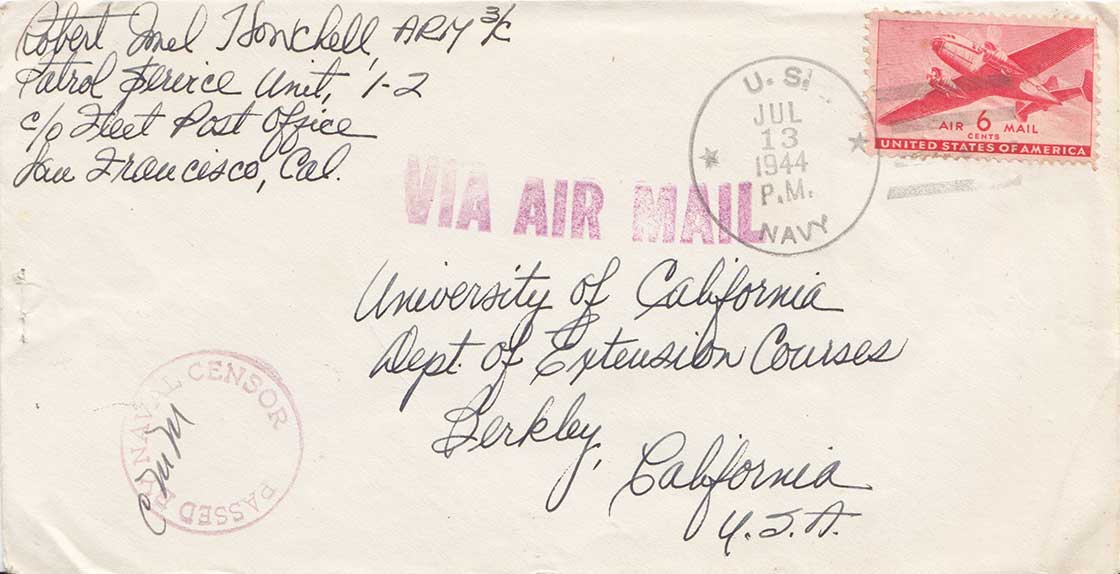 Robert Imel Honchell, ARM 3/c
Patrol Service Unit, 1-2
c/o Fleet Post Office
San Francisco, Cal.
VIA AIR MAIL
U.S.
JUL
13
1944
P.M.
NAVY
AIR 6 MAIL
CENTS
UNITED STATES OF AMERICA
University of California
Dept. of Extension Courses
Berkley,
California
U.S.A.
PASSED BY NAVAL CENSOR